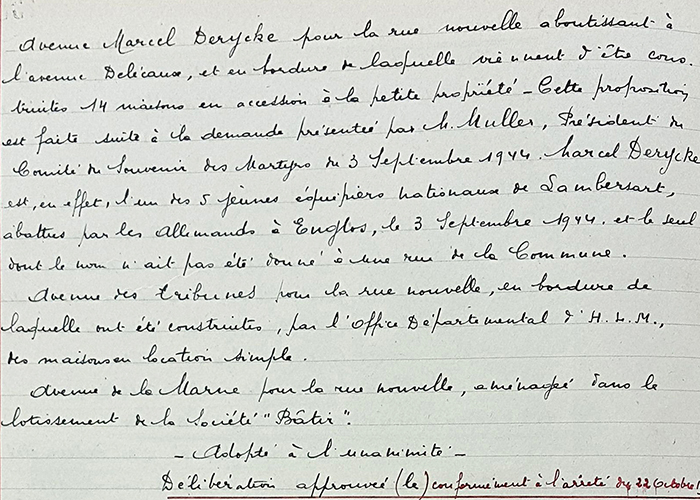 Avenue Marcel Derycke pour la rue nouvelle aboutissant à
l'avenue Delécaux, et en bordure de laquelle viennent d'être cons.
truites 14 maisons en accession à la petite propriété - Cette proposition
est faite suite à la demande présentée par M. Muller, Président du
Comité du Souvenir des Martyrs du 3 Septembre 1944. Marcel Derycke
est, en effet, l'un des 5 jeunes équipiers nationaux de Lambersart,
abattus par les Allemands à Englos, le 3 Septembre 1944. et le seul
dont le nom n'ait pas été donné à une rue de la Commune.
Avenue des tribunes pour la rue nouvelle, en bordure de
laquelle ont été construites, par l'Office Départemental d'H.L.M.,
des maisons en location simple.
Avenue de la Marne pour la rue nouvelle, aménagée dans le
lotissement de la Société "Bâtir".
- Adopté à l'unanimité -
Délibération approuvée (le) conformément à l'arrêté du 22 Octobre